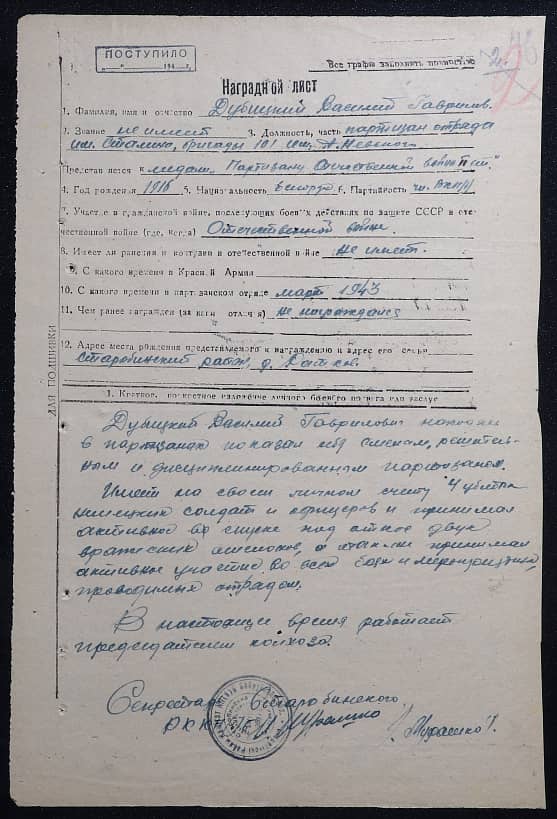 ПОСТУПИЛО
" " 194 г.
Все графы заполнять полностью
2
Наградной лист
1. Фамилия, имя и отчество Дубицкий Василий Гаврилов.
2. Звание не имеет 3. Должность, часть партизан отряда
им. Сталина, бригады 101 им. А. Невского
Представляется к медали "Партизану Отечественной войны II ст."
4. Год рождения 1918 5. Национальность белорус 6. Партийность чл. ВКП(б)
7. Участие в гражданской войне, последующих боевых действиях по защите СССР и оте-
чественной войне (где, когда) Отечественной войне.
8. Имеет ли ранения и контузии в отечественной войне Не имеет.
9. С какого времени в Красной Армии
10. С какого времени в партизанском отряде март 1943
11. Чем ранее награжден (за какие отличия) не награждался
12. Адрес места рождения представляемого к награждению и адрес его семьи
Старобинский район, д.
1. Краткое, конкретное изложение личного боевого подвига или заслуг
ДЛЯ ПОДШИВКИ
Дубицкий Василий Гаврилович находясь
в партизанах показал себя смелым, решитель-
ным и дисциплинированным партизаном.
Имеет на своем личном счету 4 убитых
немецких солдат и офицеров и принимал
активное в спуске под откос двух
вражеских эшелонов, а также принимал
активное участие во всех боях и мероприятиях,
проводимых отрядом.
В настоящее время работает
председателем колхоза.
Секретарь Старобинского
РК КП(б)Б Мурашко
/Мурашко/